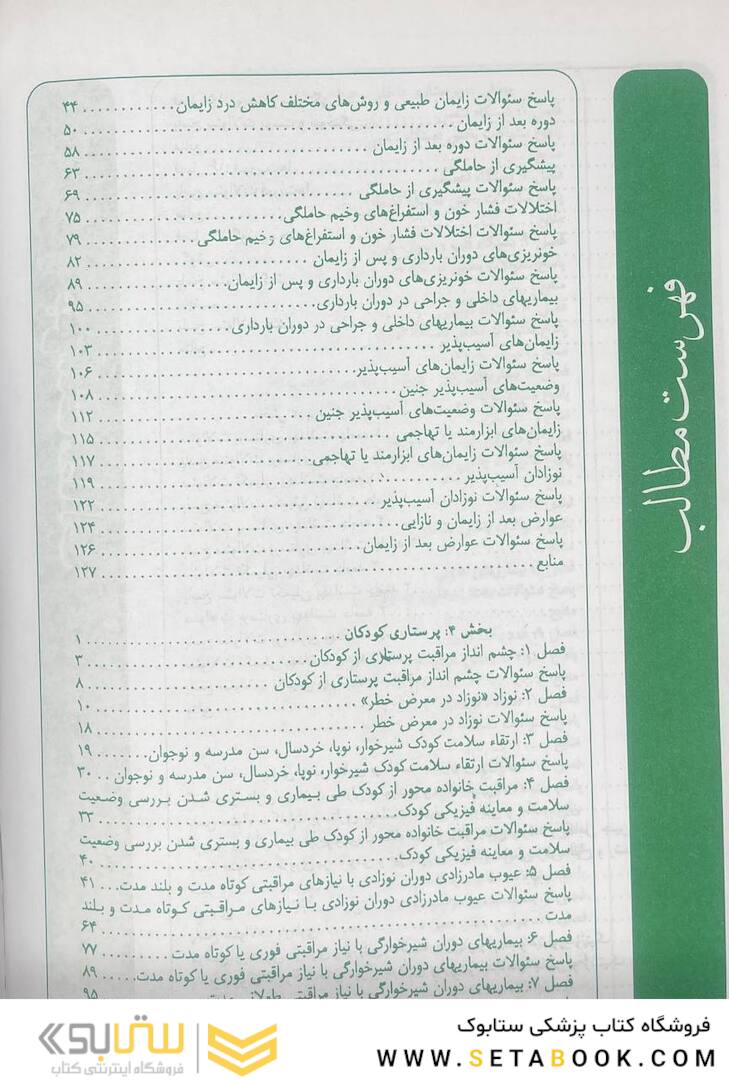 فهرست مطالب
پاسخ سئوالات زایمان طبیعی و روش‌های مختلف کاهش درد زایمان............ ۴۴
دوره بعد از زایمان............ ۵۰
پاسخ سئوالات دوره بعد از زایمان............ ۵۸
پیشگیری از حاملگی............ ۶۳
پاسخ سئوالات پیشگیری از حاملگی............ ۶۹
اختلالات فشار خون و استفراغ‌های وخیم حاملگی............ ۷۵
پاسخ سئوالات اختلالات فشار خون و استفراغ‌های وخیم حاملگی............ ۷۹
خونریزی‌های دوران بارداری و پس از زایمان............ ۸۲
پاسخ سئوالات خونریزی‌های دوران بارداری و پس از زایمان............ ۸۹
بیماریهای داخلی و جراحی در دوران بارداری............ ۹۵
پاسخ سئوالات بیماریهای داخلی و جراحی در دوران بارداری............ ۱۰۰
زایمان‌های آسیب‌پذیر............ ۱۰۳
پاسخ سئوالات زایمان‌های آسیب‌پذیر............ ۱۰۶
وضعیت‌های آسیب‌پذیر جنین............ ۱۰۸
پاسخ سئوالات وضعیت‌های آسیب‌پذیر جنین............ ۱۱۲
زایمان‌های ابزارمند یا تهاجمی............ ۱۱۵
پاسخ سئوالات زایمان‌های ابزارمند یا تهاجمی............ ۱۱۷
نوزادان آسیب‌پذیر............ ۱۱۹
پاسخ سئوالات نوزادان آسیب‌پذیر............ ۱۲۲
عوارض بعد از زایمان و نازایی............ ۱۲۴
پاسخ سئوالات عوارض بعد از زایمان............ ۱۲۶
منابع............ ۱۲۷
بخش ۴: پرستاری کودکان............ ۱
فصل ۱: چشم انداز مراقبت پرستاری از کودکان............ ۳
پاسخ سئوالات چشم انداز مراقبت پرستاری از کودکان............ ۸
فصل ۲: نوزاد «نوزاد در معرض خطر»............ ۱۰
پاسخ سئوالات نوزاد در معرض خطر............ ۱۸
فصل ۳: ارتقاء سلامت کودک شیرخوار، نوپا، خردسال، سن مدرسه و نوجوان............ ۱۹
پاسخ سئوالات ارتقاء سلامت کودک شیرخوار، نوپا، خردسال، سن مدرسه و نوجوان .. ۳۰
فصل ۴: مراقبت خانواده محور از کودک طی بیماری و بستری شدن بررسی وضعیت
سلامت و معاینه فیزیکی کودک............ ۳۳
پاسخ سئوالات مراقبت خانواده محور از کودک طی بیماری و بستری شدن بررسی وضعیت
سلامت و معاینه فیزیکی کودک............ ۴۰
فصل ۵: عیوب مادرزادی دوران نوزادی با نیازهای مراقبتی کوتاه مدت و بلند مدت... ۴۱
پاسخ سئوالات عیوب مادرزادی دوران نوزادی با نیازهای مراقبتی کوتاه مدت و بلند
مدت............ ۶۴
فصل ۶: بیماریهای دوران شیرخوارگی با نیاز مراقبتی فوری یا کوتاه مدت............ ۷۷
پاسخ سئوالات بیماریهای دوران شیرخوارگی با نیاز مراقبتی فوری یا کوتاه مدت..... ۸۹
فصل ۷: بیماریهای دوران شیرخوارگی با نیاز مراقبتی طولانی مدت............ ۹۵
فروشگاه کتاب پزشکی ستابوک
WWW.SETABOOK.COM
ستابوک
فروشگاه اینترنتی کتاب